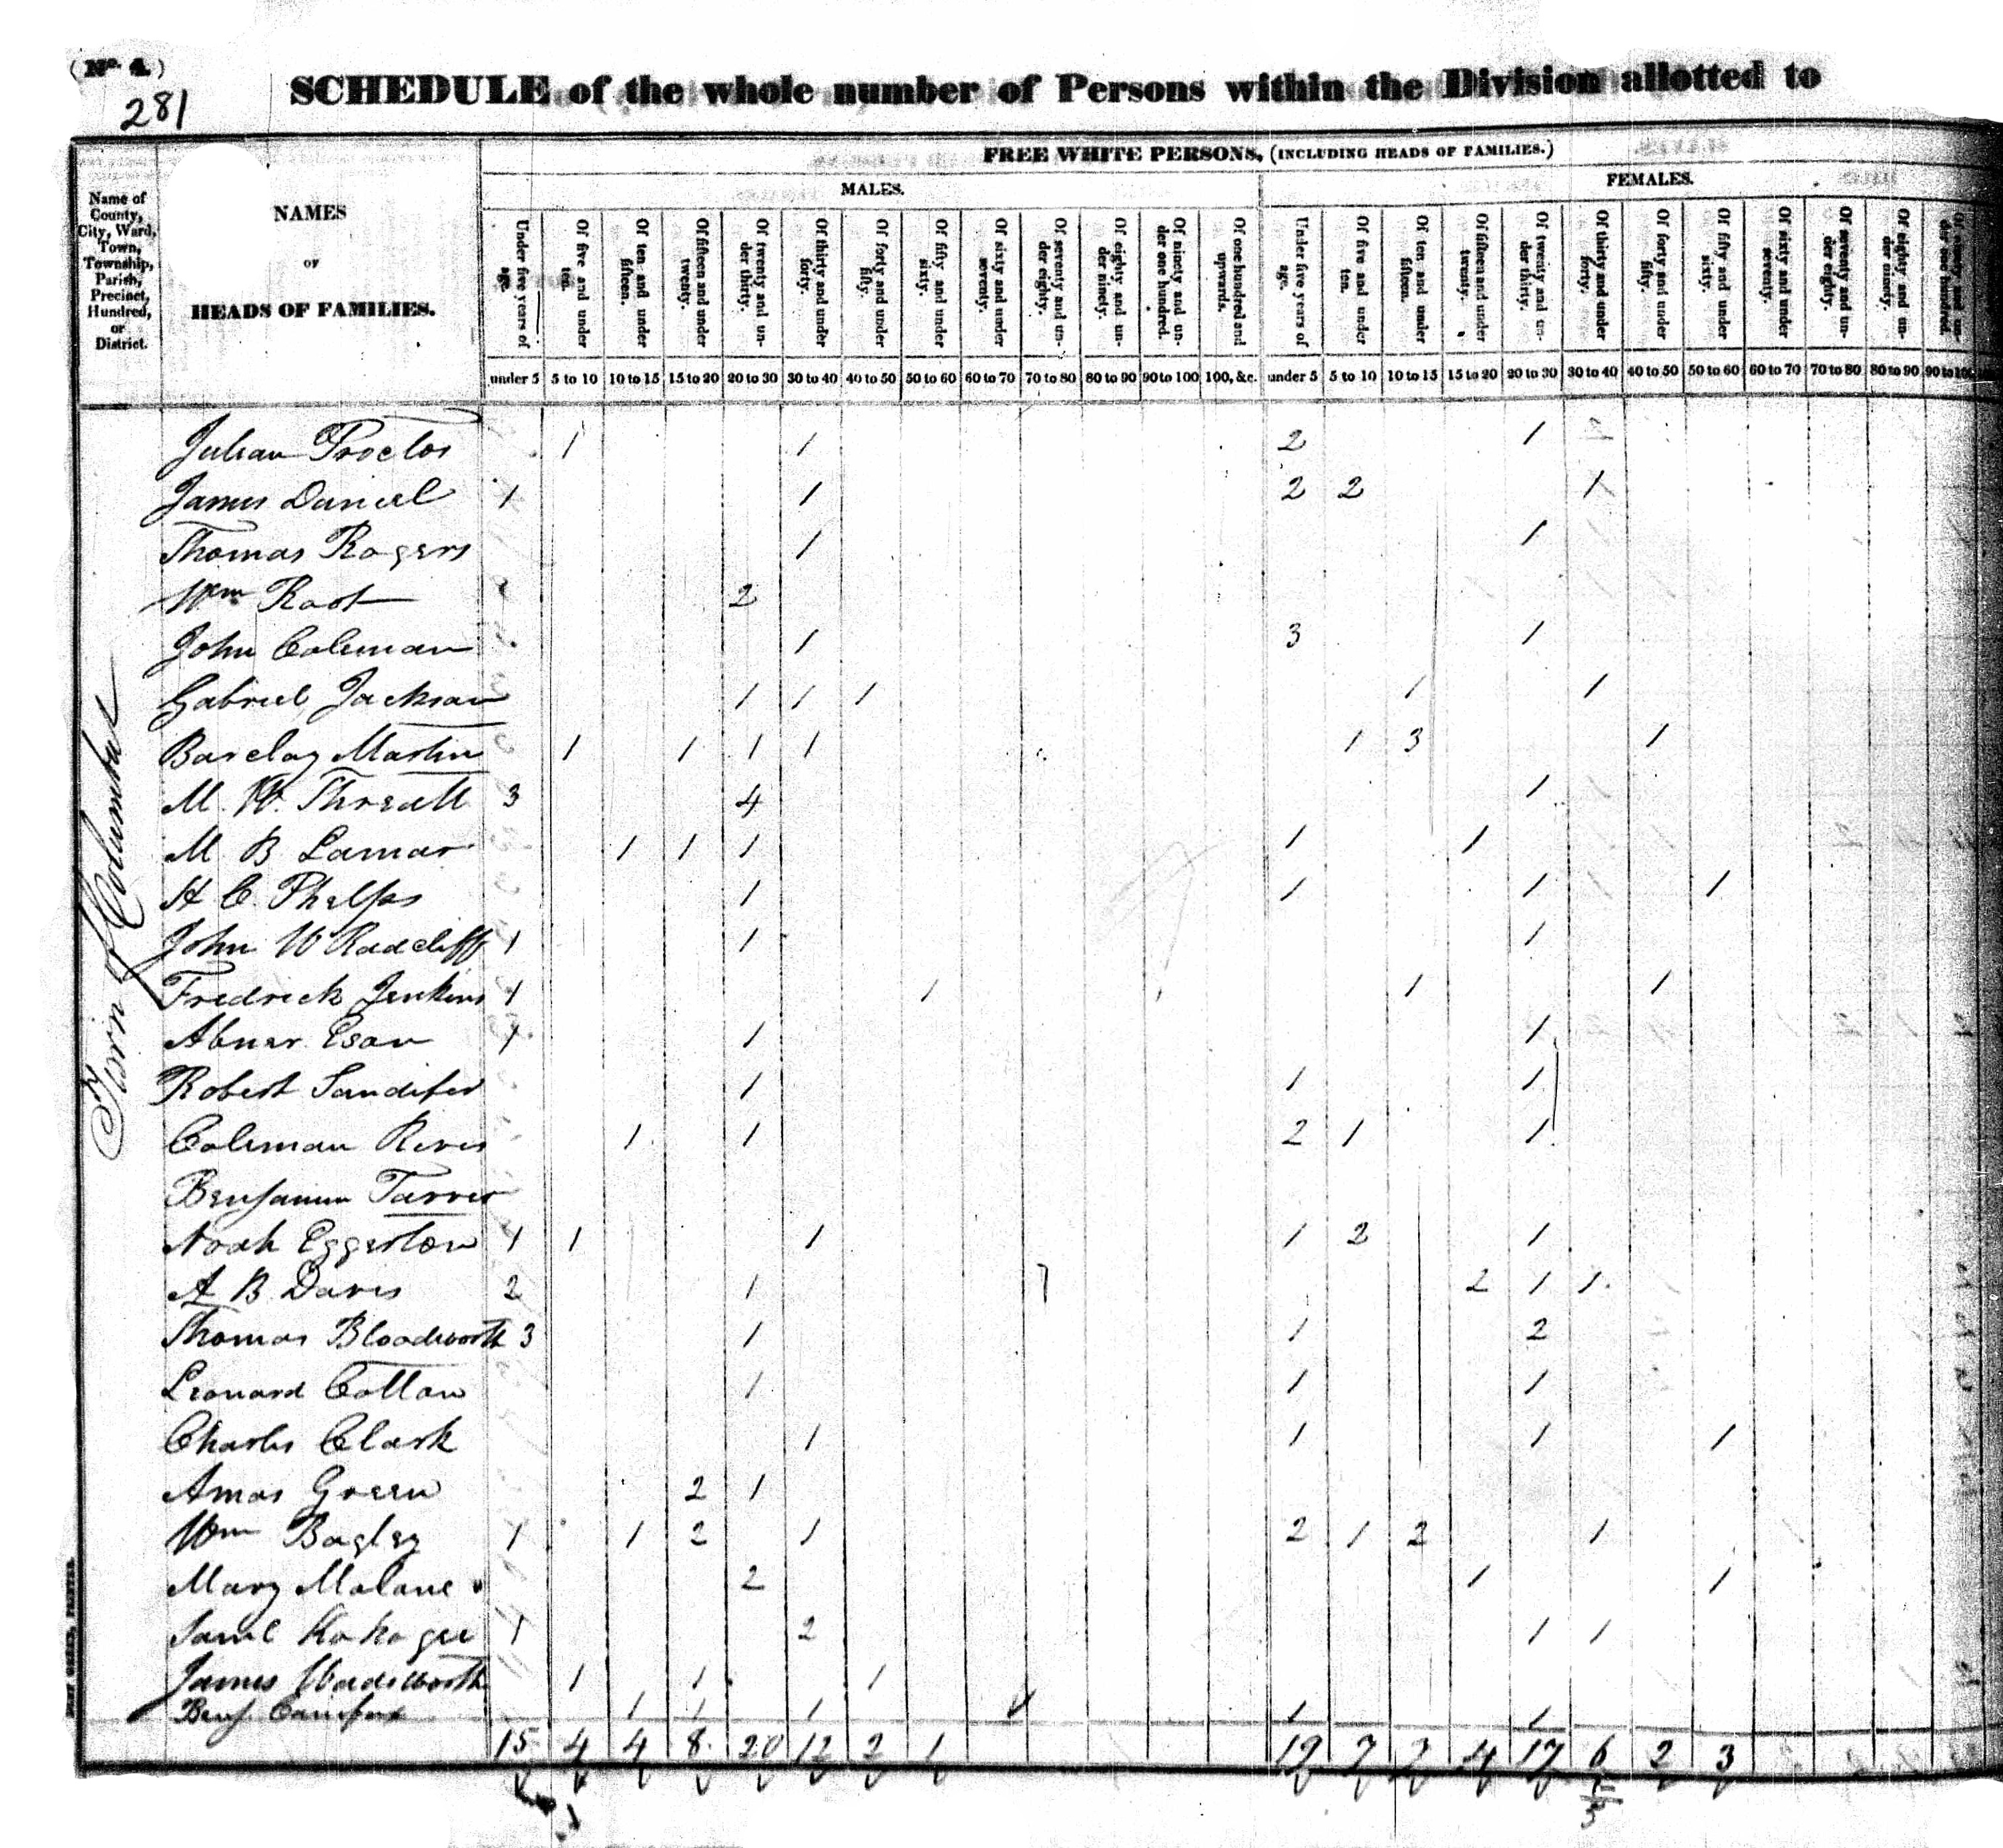 (No. 4.)
281
SCHEDULE of the whole number of Persons within the Division allotted to
Name of County, City, Ward, Town, Township, Parish, Precinct, Hundred, or District.
NAMES
OF
HEADS OF FAMILIES.
FREE WHITE PERSONS, (INCLUDING HEADS OF FAMILIES.)
MALES.
FEMALES.
Under five years of age.
Of five and under ten.
Of ten and under fifteen.
Of fifteen and under twenty.
Of twenty and under thirty.
Of thirty and under forty.
Of forty and under fifty.
Of fifty and under sixty.
Of sixty and under seventy.
Of seventy and under eighty.
Of eighty and under ninety.
Of ninety and under one hundred.
Of one hundred and upwards.
Under five years of age.
Of five and under ten.
Of ten and under fifteen.
Of fifteen and under twenty.
Of twenty and under thirty.
Of thirty and under forty.
Of forty and under fifty.
Of fifty and under sixty.
Of sixty and under seventy.
Of seventy and under eighty.
Of eighty and under ninety.
Of ninety and under one hundred.
under 5 5 to 10 10 to 15 15 to 20 20 to 30 30 to 40 40 to 50 50 to 60 60 to 70 70 to 80 80 to 90 90 to 100 100, &c. under 5 5 to 10 10 to 15 15 to 20 20 to 30 30 to 40 40 to 50 50 to 60 60 to 70 70 to 80 80 to 90 90 to 100
Town of Columbus
Julian Proctor 1 1 2 1
James Daniel 1 1 2 2 1
Thomas Rogers 1 1
Wm Root 2
John Coleman 1 3 1
Gabriel Jackson 1 1 1 1 1
Barclay Martin 1 1 1 1 1 3 1
M. W. Threatt 3 4 1
M B Lamar 1 1 1 1 1
H C. Phelps 1 1 1 1
John W Radcliff 1 1 1
Fredrick Jenkins 1 1 1 1
Abner Eson 1 1 1
Robert Sandifer 1 1 1
Coleman Rives 1 1 2 1 1
Benjamin Tarver
Noah Eggerton 1 1 1 1 2 1
A B Davis 2 1 2 1 1
Thomas Bloodworth 3 1 1 2
Leonard Cotton 1 1 1
Charles Clark 1 1 1 1
Amos Green 2 1
Wm Bagley 1 1 2 1 2 1 2 1
Mary Malone 2 1 1
Saml 1 2 1 1
James Wadsworth 1 1 1
Benj. 1 1 1 1 1
15 4 4 8 20 12 2 1 19 7 7 4 17 6 2 3